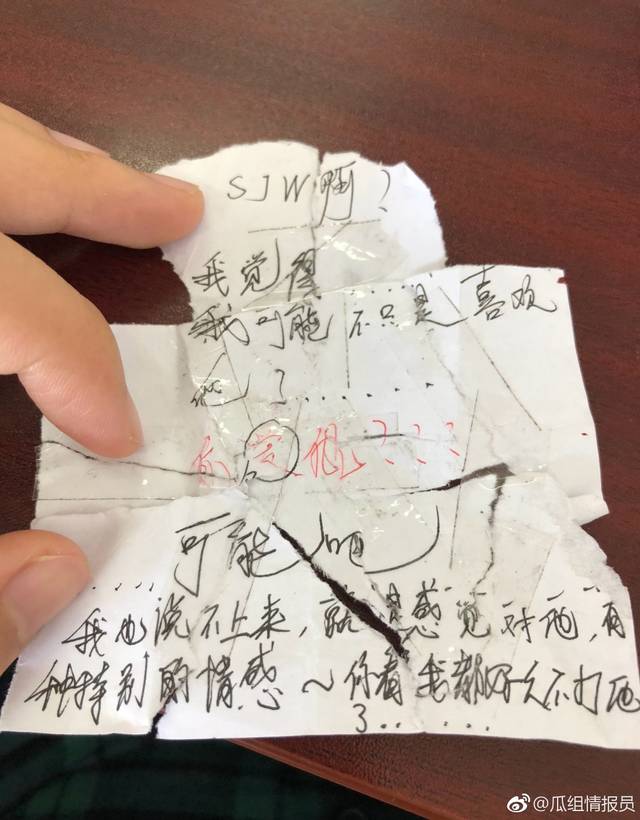 SJW啊?
我觉得......
我可能不只是喜欢
他了......
他???
可能吧
....
我也说不上来,就是感觉对他,有
种特别的情感~你看我都好久不打他
了......
@瓜组情报员